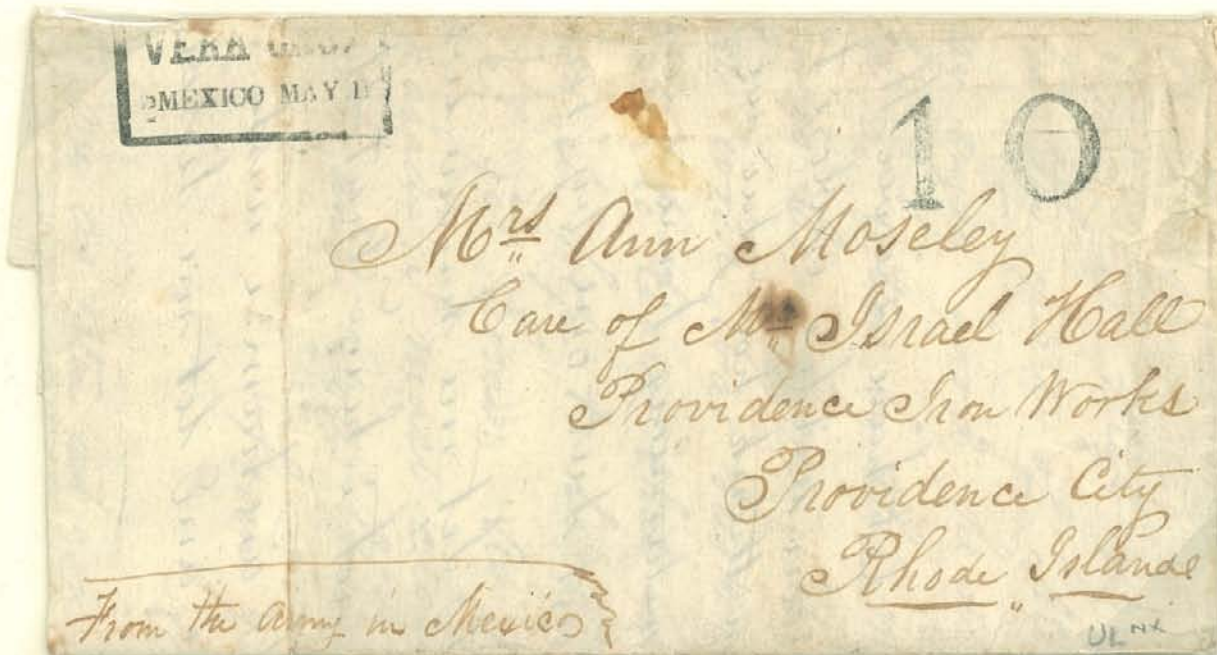 VERA
MEXICO MAY
10
Mrs Ann Moseley
Care of Mr Israel Hall
Providence Iron Works
Providence City
Rhode Island
From the army in Mexico
UL